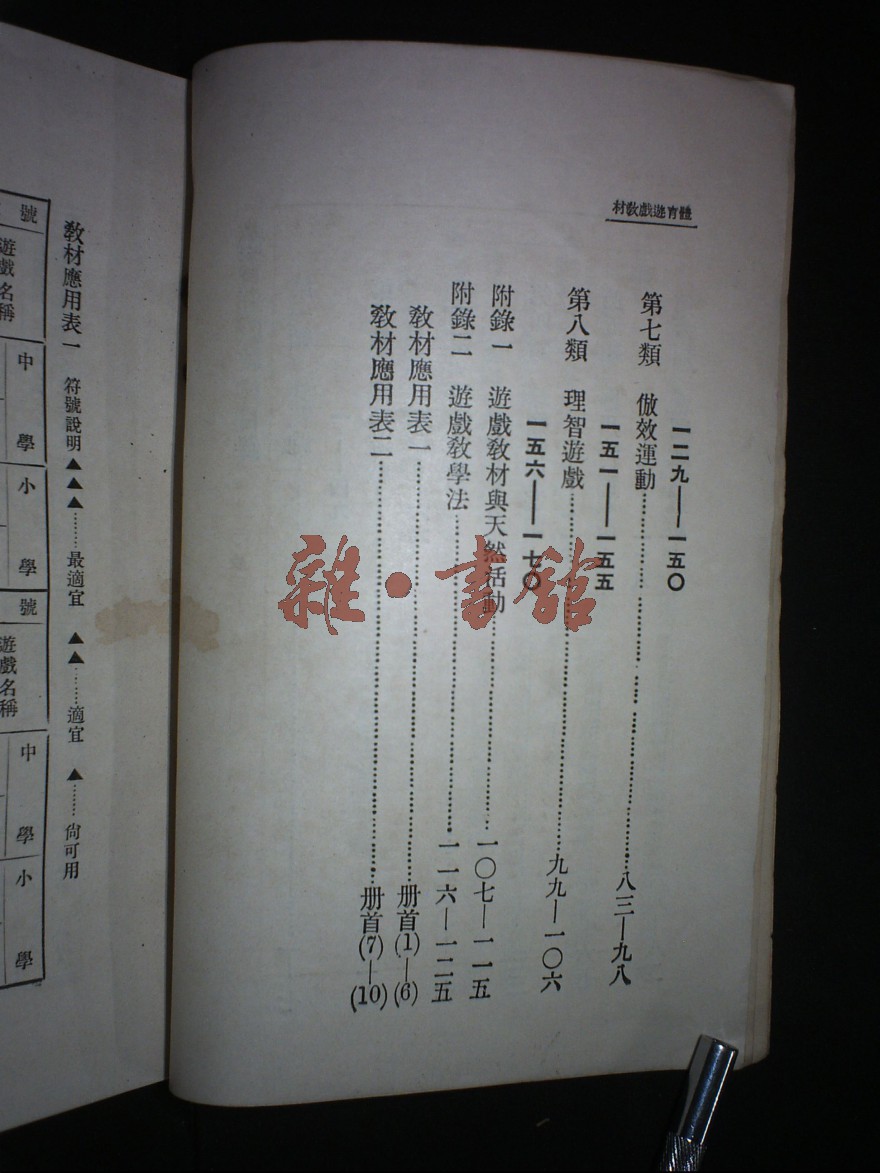 體育遊戲教材
一二九——一五〇
第七類 倣效運動……八三—九八
一五一——一五五
第八類 理智遊戲……九九—一〇六
一五六——一七〇
附錄一 遊戲教材與天然活動……一〇七—一一五
附錄二 遊戲教學法……一一六—一二五
教材應用表一……册首(1)—(6)
教材應用表二……册首(7)—(10)
教材應用表一 符號說明▲▲▲……最適宜 ▲▲……適宜 ▲……尚可用
號
遊戲名稱
中學
小學
號
遊戲名稱
中學
小學
雜·書館